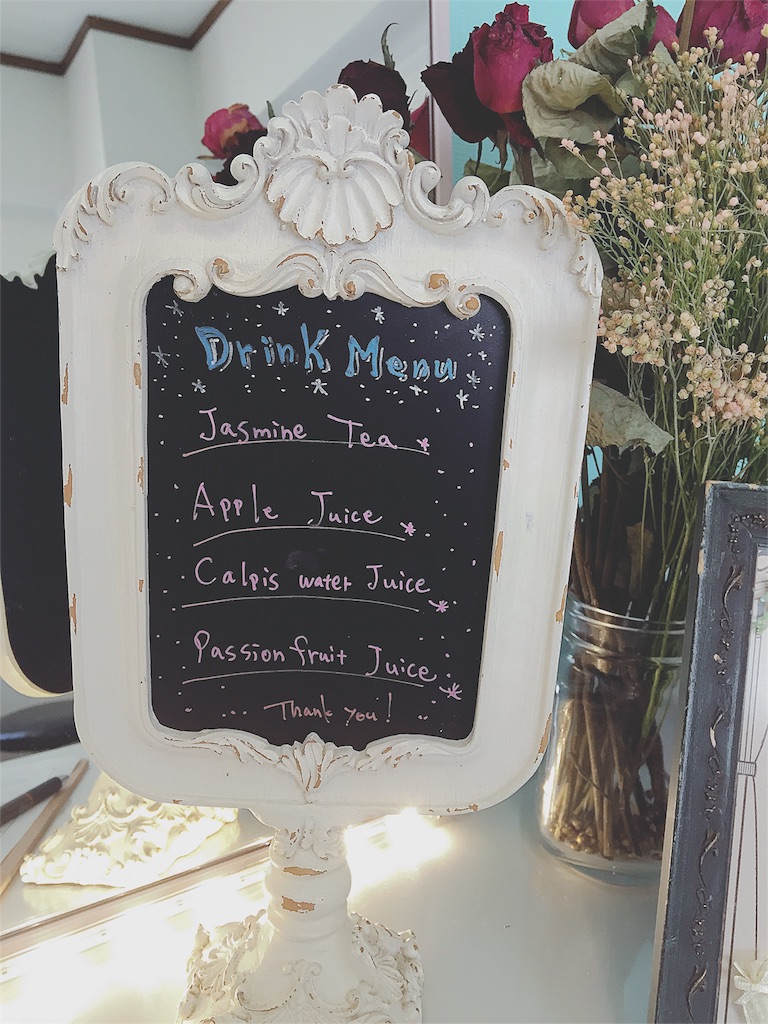 Drink Menu
Jasmine Tea
Apple Juice
Calpis water Juice
Passionfruit Juice
Thank you!